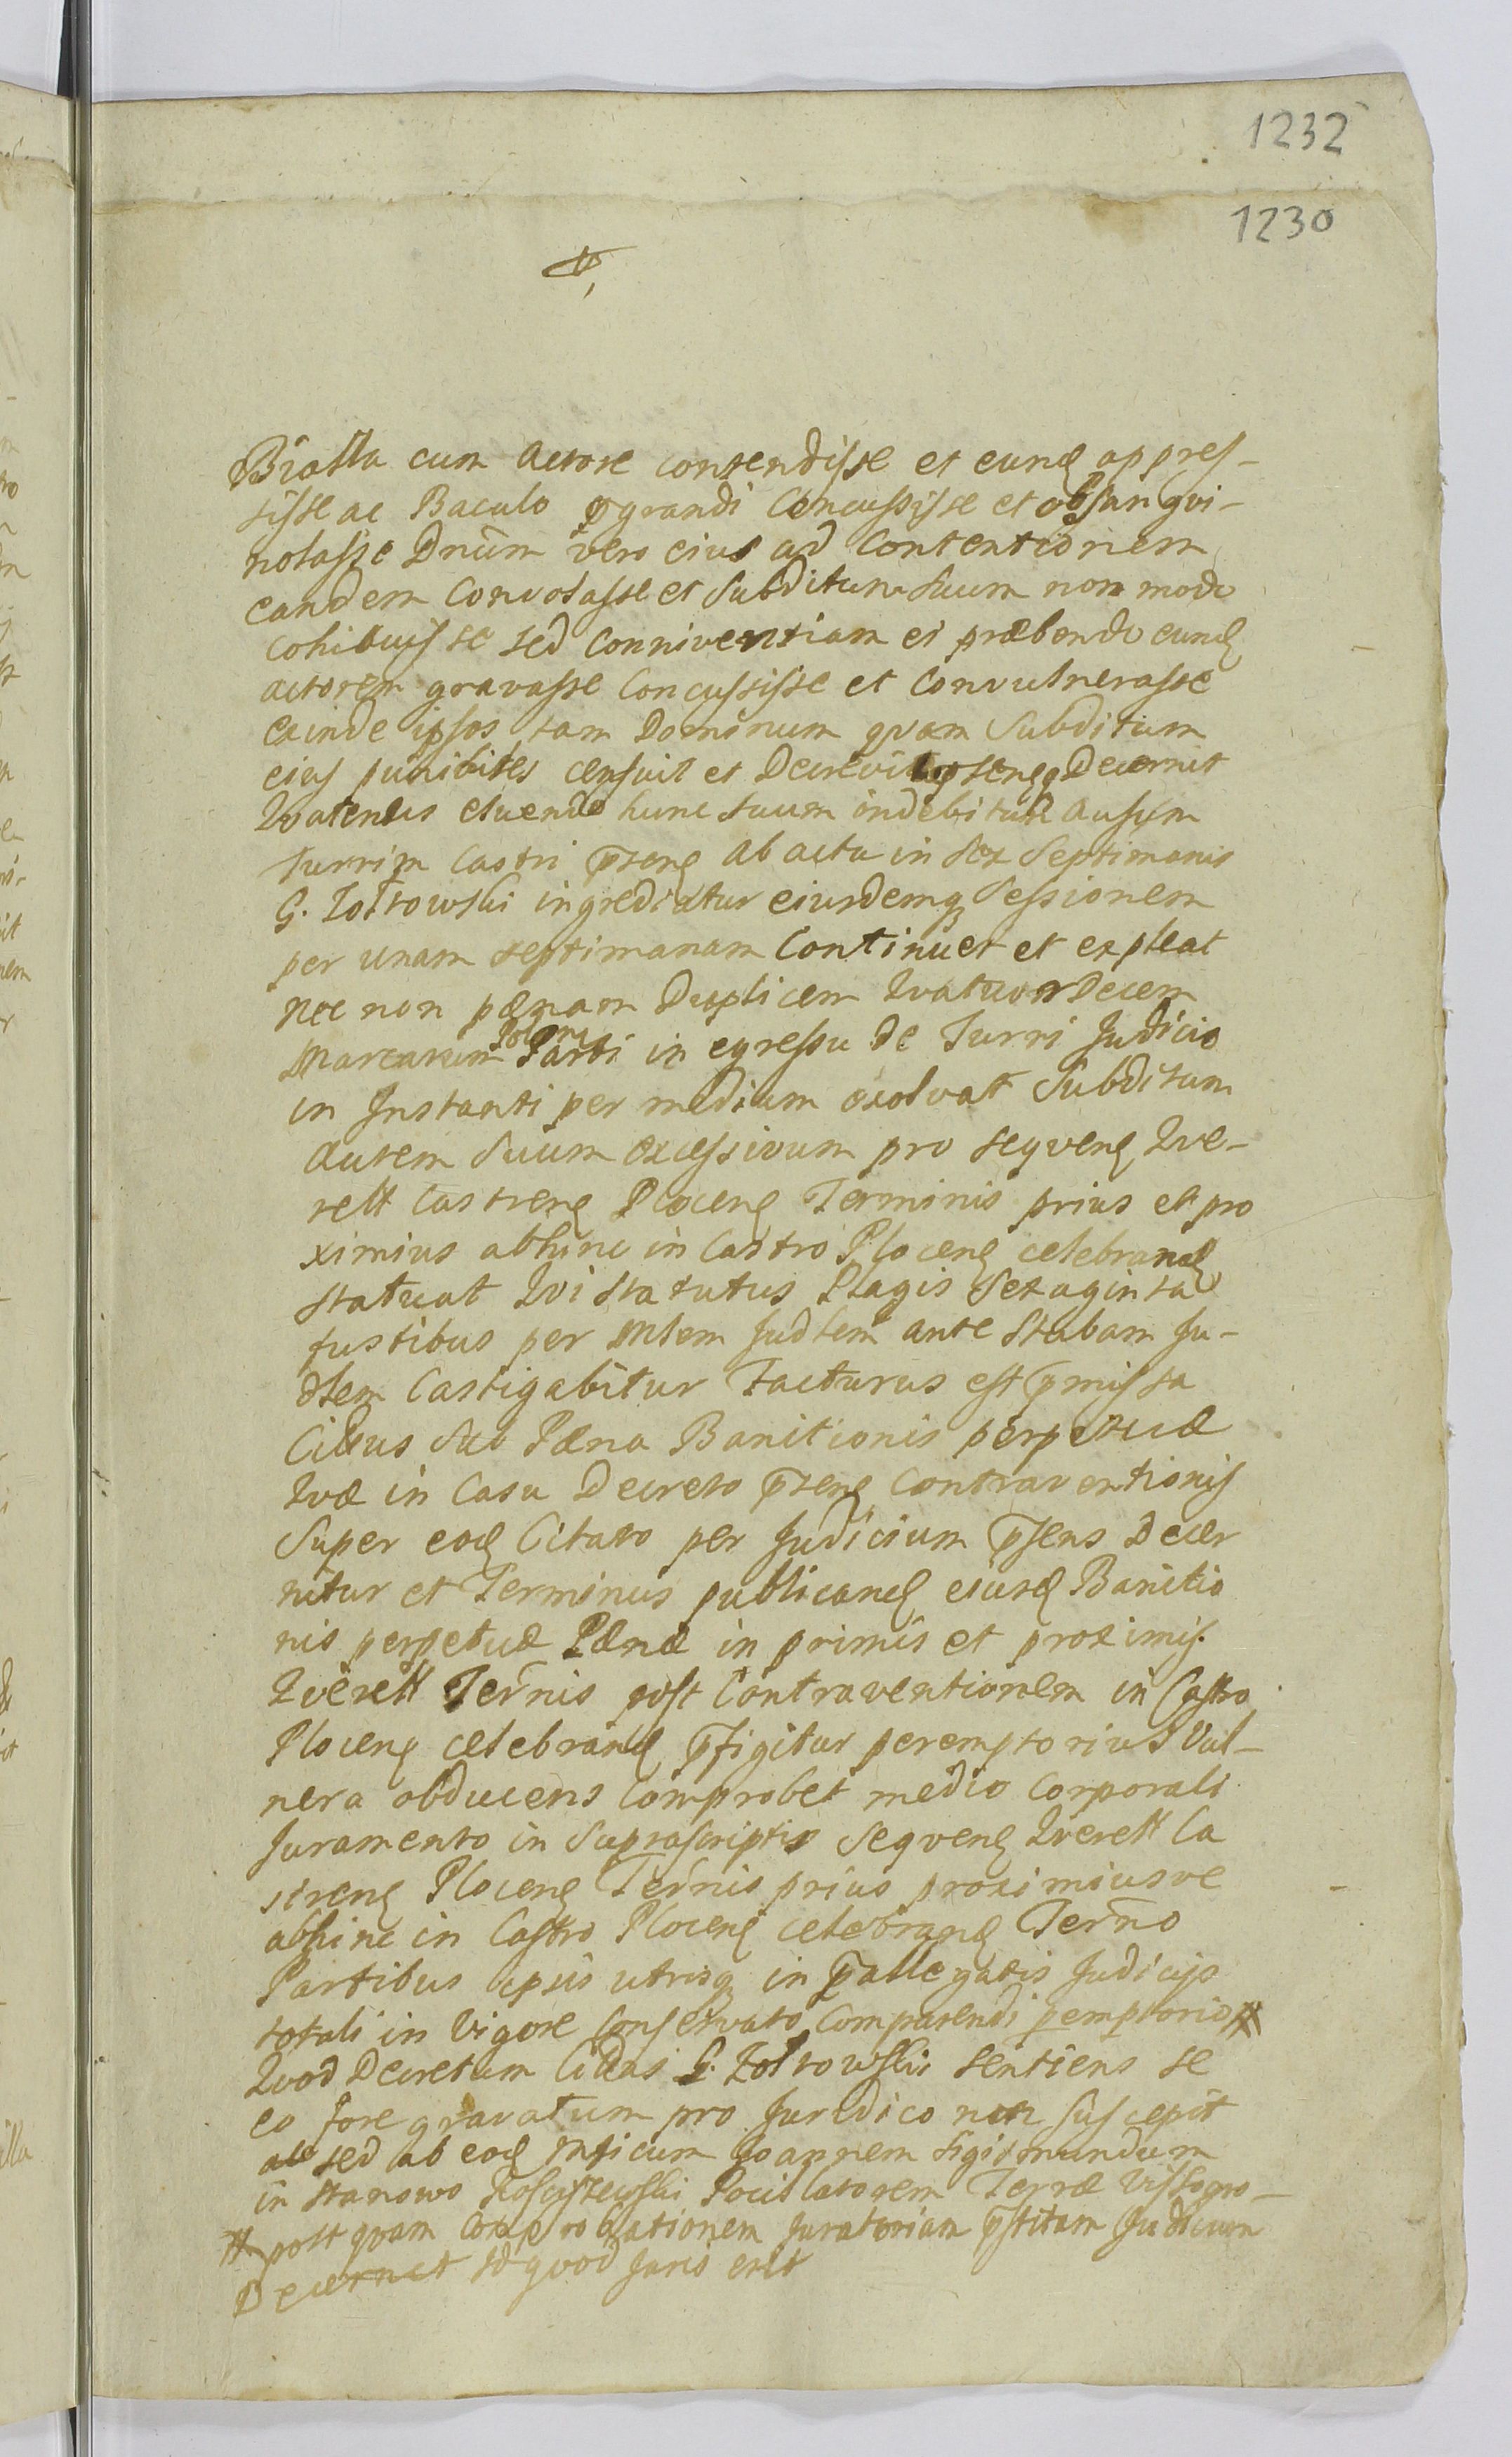 1232
1230
Biallu cum Actore contendisse et eund oppres-
sisse ac Baculo pgrandi Concussisse et obsangvi-
nolasse Dnum vero eius ad Contentionem
eandem Convolasse et Subditum suum non modo
cohibuisse sed Conniventiam ei præbendo eund
actorem gravasse Concussisse et Convulnerasse
exinde ipsos tam Dominum qvam Subditum
eius punibiles censuit et Decrevit Decernit
Qvatenus eluendo hunc suum indebitum Ausum
Turrim Castri p̄sens Ab actu in Sex Septimanis
G. Zołtowski ingrediatur eiusdemq Sessionem
per unam septimanam Continuet et expleat
Nec non pænam Duplicem Qvatuordecem
Marcarum Polon Parti in egressu de Turri Judicio
in Instanti per medium exolvat Subditum
Autem Suum Excessivum pro seqven Qve-
rell Castren Plocen Terminis prius et pro
ximius abhinc in Castro Plocen celebrand
Statuat Qvi statutus Plagis Sexaginta
fustibus per Mlem Judlem ante Stubam Ju-
dlem Castigabitur Facturus est p̄missa
Cittus Sub Pæna Banitionis perpetuæ
Qvæ in Casu Decreto p̄sen Contraventionis
Super eod Citato per Judicium p̄sens Decer
nitur et Terminus publicand eiusd Banitio
nis perpetuæ Pænæ in primis et proximis
Qverell Ternis post Contraventionem in Castro
Plocen celebrand p̄figitur peremptorius Vul-
nera obducens Comprobet medio Corporali
Juramento in Suprascriptis Seqven Qverell Ca
stren Plocen Ternis prius proximiusve
abhinc in Castro Plocen celebrand Termo
Partibus ipsis utrisq in p̄allegatis Judicijs
totali in Vigore Conservato Comparendi pemptorio #
Qvod Decretum Cittus G. Zołtowski sentiens se
eo fore gravatum pro Juridico non suscepit
sed ab eod Mficum Joannem Sigismundum
in Stanowo Kosciszewski Pocillatorem Terræ Vissogro-
# post qvam Comprobationem Juratoriam p̄stitam Judicium
Decernet Id qvod Juris erit